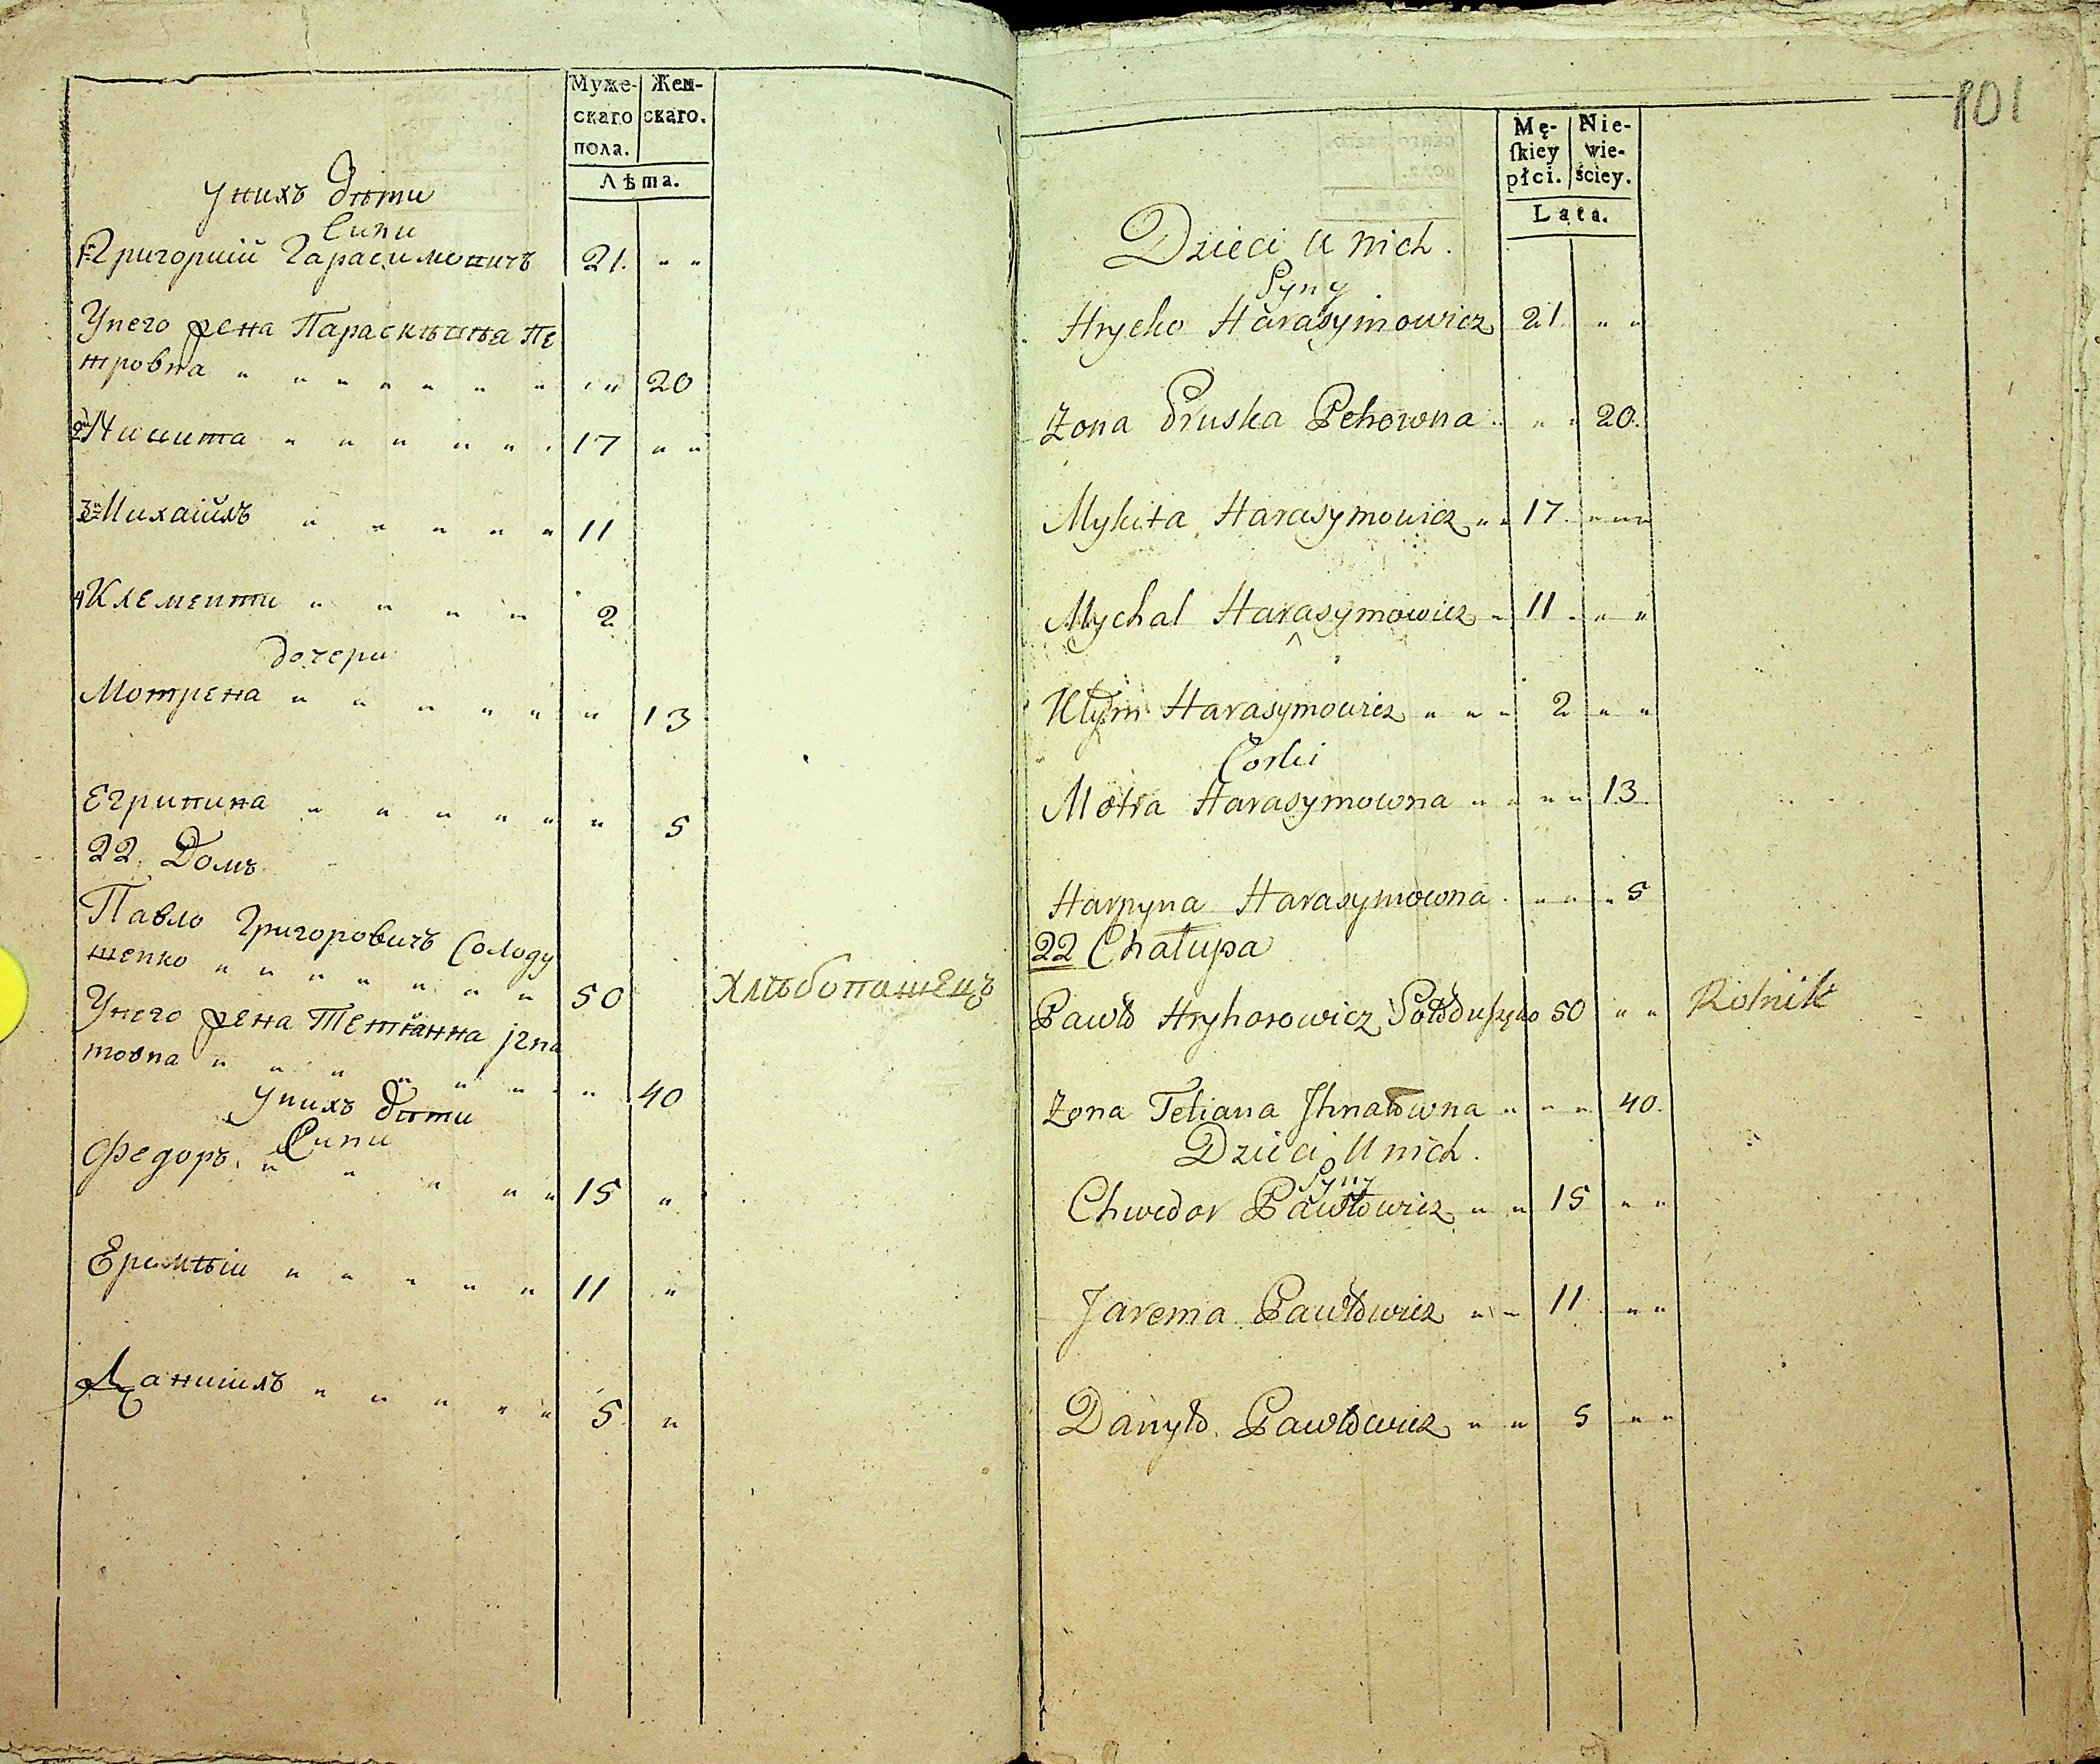 Муже-
скаго
пола.
Жен-
скаго.
Лѣта.
Унихъ дѣти
Сини
1й Григорiй Гарасимовичъ 21. " "
Унего жена Парасковья Пе
тровна " " " " " " " " " 20
2й Микита " " " " " " 17 " "
3й Михайлъ " " " " " 11
4 Клементи " " " " 2
дочери
Мотрена " " " " " " 13
Егрипина " " " " " " 5
22 Домъ
Павло Григоровичъ Солоду
шенко " " " " " " 50 Хлѣбопашецъ
Унего жена Тетianна iгна
товна " " " " " " " 40
Унихъ дѣти
Сини
Федоръ " " " " " 15 "
Еремѣiй " " " " " 11 "
Данiилъ " " " " " 5 "
101
Mę-
ſkiey
płci.
Nie-
wie-
ściey.
Lata.
Dzieci U nich.
Syny
Hryćko Harasymowicz 21. " "
Żona Pruska Petrowna " " 20.
Mykita Harasymowicz " " 17 " " "
Mychal Harasymowicz " 11 " " "
Kłym Harasymowicz " " " 2 " "
Corki
Motra Harasymowna " " " " 13.
Harpyna Harasymowna " " " 5
22 Chałupa
Pawło Hryhorowicz Sołoduszko 50 " " Rolnik
Żona Tetiana Ihnatowna " " " 40.
Dzieci U nich.
Syny
Chwedor Pawłowicz " " 15 " "
Jarema Pawłowicz " " 11 " "
Danyło Pawłowicz " " 5 " "